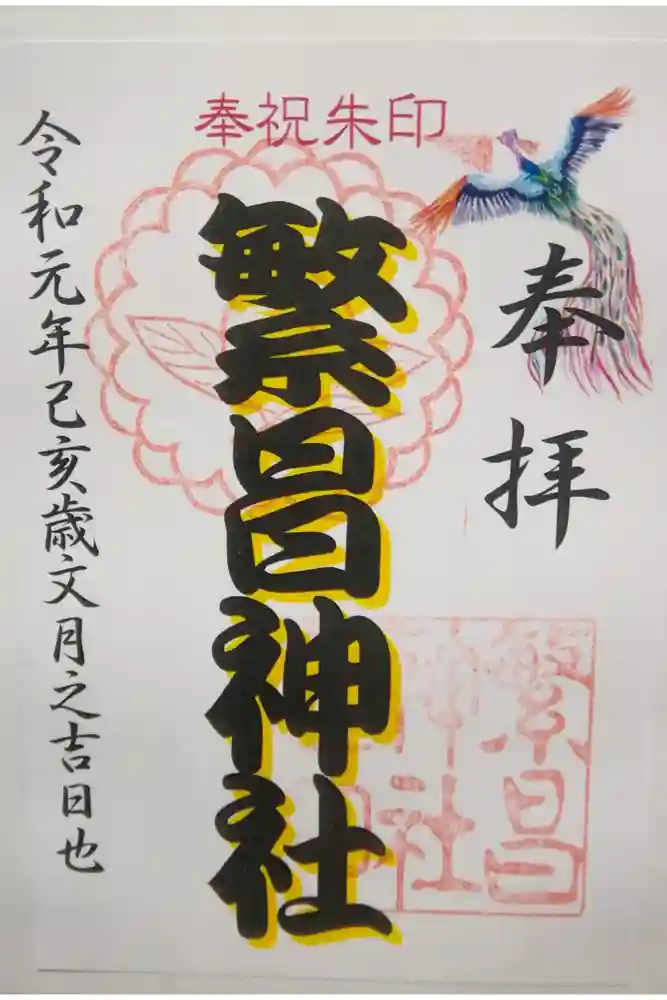 奉祝朱印
奉拝
繁昌神社
令和元年己亥歳文月之吉日也
繁昌
神社